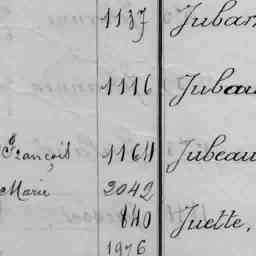 1137 Jubar
1116 Jubau
François 1164 Jubeau
Marie 2042
840 Juette,
1976